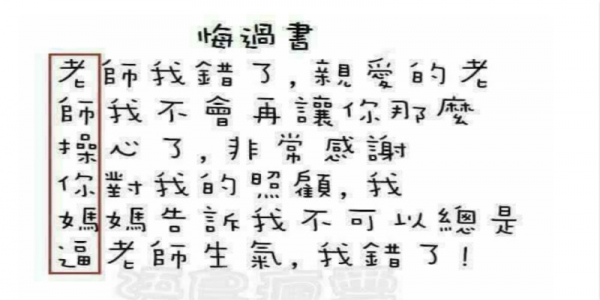 悔過書
老師我錯了,親愛的老
師我不會再讓你那麼
操心了,非常感謝
你對我的照顧,我
媽媽告訴我不可以總是
逼老師生氣,我錯了!